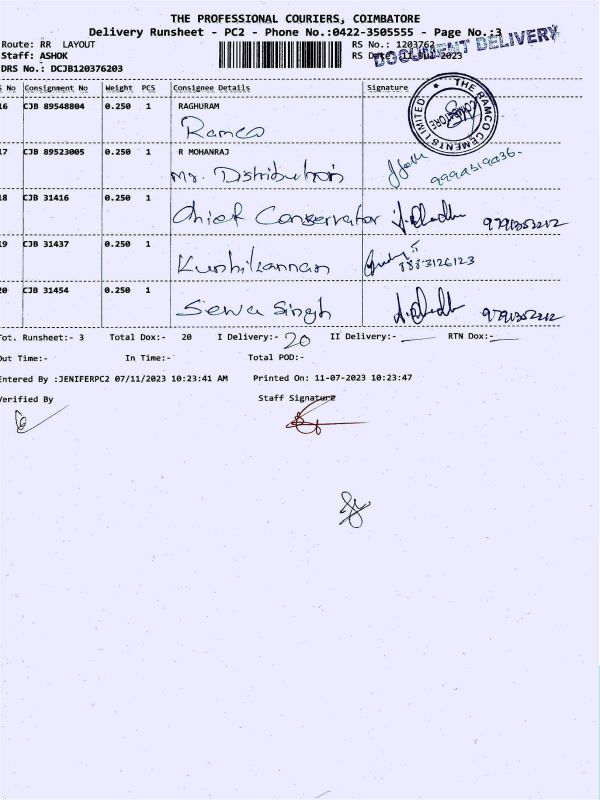 THE PROFESSIONAL COURIERS, COIMBATORE
Delivery Runsheet - PC2 - Phone No.:0422-3505555 - Page No.:3
DOCUMENT DELIVERY
Route: RR LAYOUT
RS No.: 1203762
Staff: ASHOK
RS Date: 11-Jul-2023
DRS No.: DCJB120376203
No Consignment No Weight PCS Consignee Details Signature
16 CJB 89548804 0.250 1 RAGHURAM
Ramco
THE RAMCO CEMENTS LIMITED
17 CJB 89523005 0.250 1 R MOHANRAJ
Mr. Distribution
18 CJB 31416 0.250 1
Chief Conservator
19 CJB 31437 0.250 1
Kunhikannan 8883126123
20 CJB 31454 0.250 1
Sewa Singh
Tot. Runsheet:- 3 Total Dox:- 20 I Delivery:- 20 II Delivery:- RTN Dox:-
Out Time:- In Time:- Total POD:-
Entered By :JENIFERPC2 07/11/2023 10:23:41 AM Printed On: 11-07-2023 10:23:47
Verified By Staff Signature